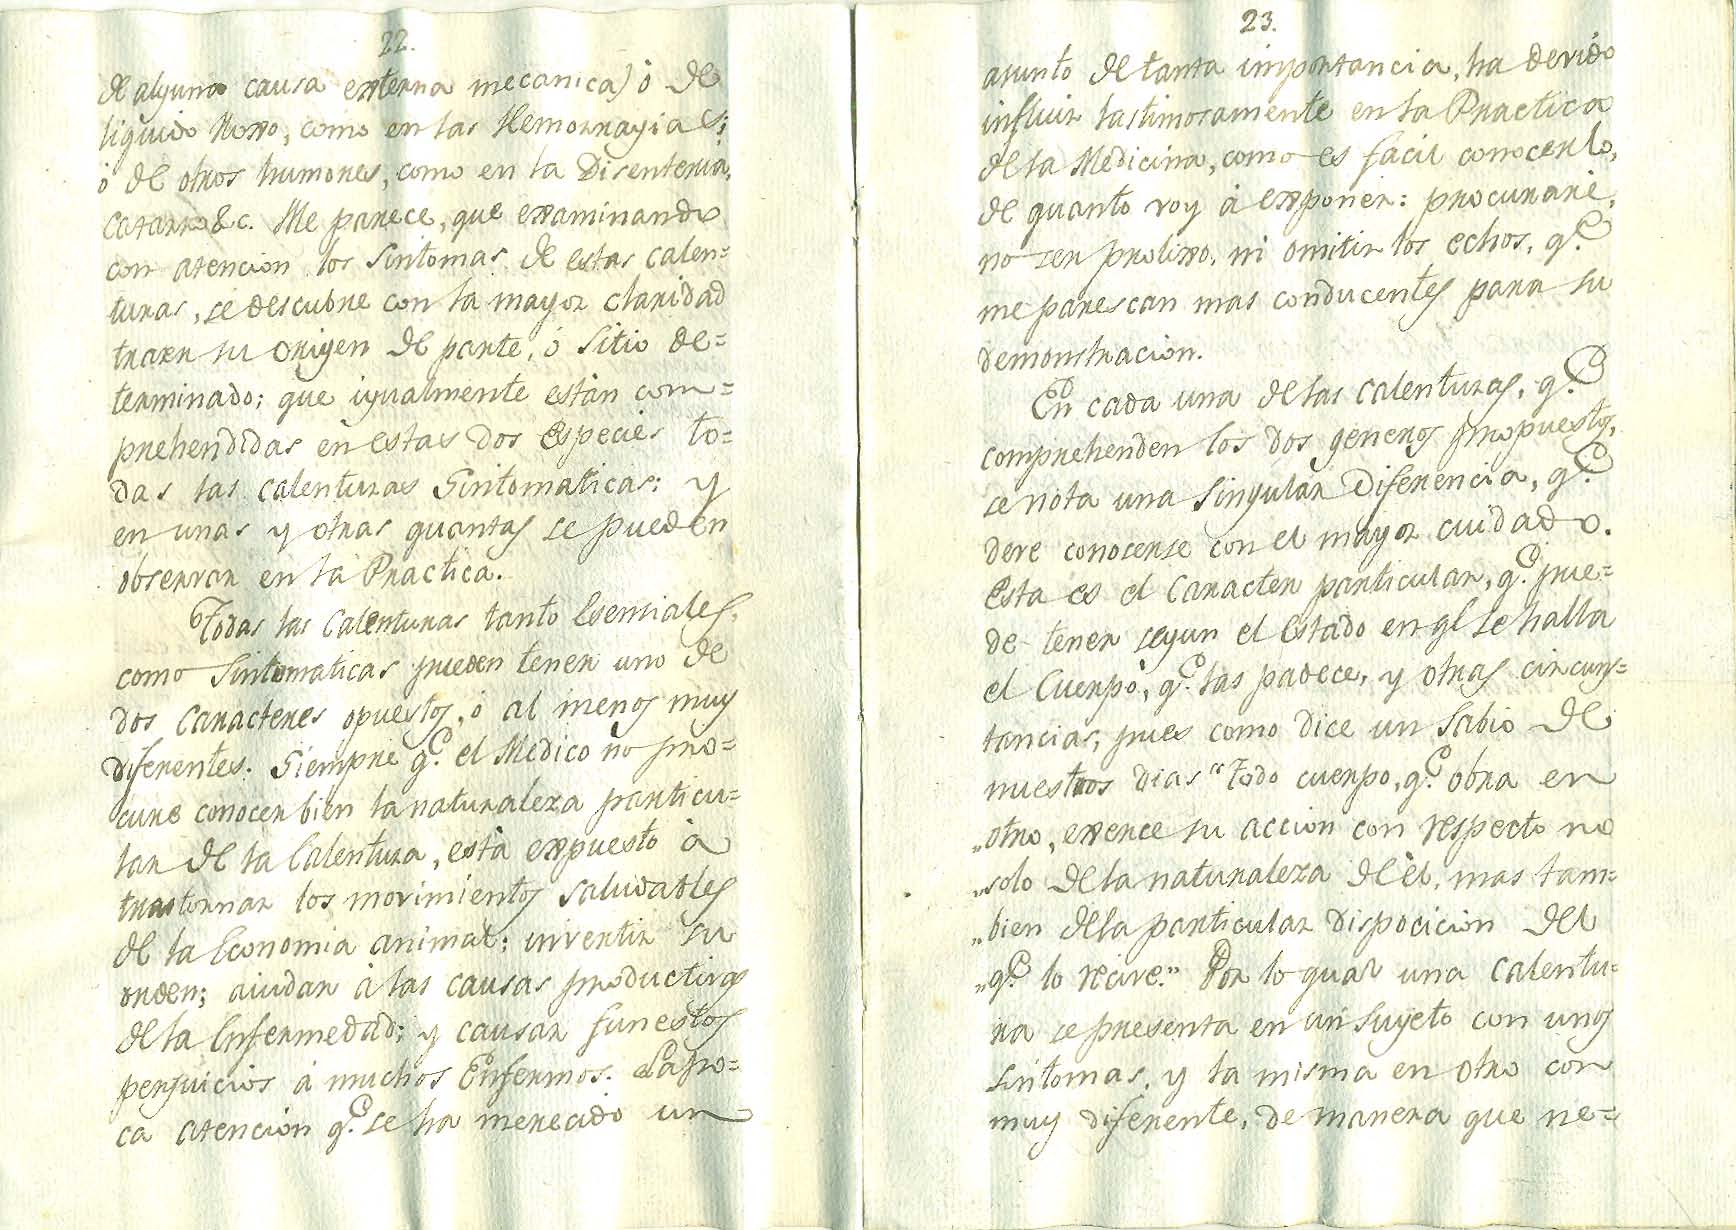 22.
de alguna causa externa mecanica) ò de
liquido Roxo, como en las Hemorragias;
ò de otros humores, como en la Disenteria,
catarro &c. Me parece, que examinando
con atencion los sintomas de estas calen=
turas, se descubre con la mayor claridad
traen su origen de parte, ó sitio de=
terminado; que igualmente estàn com=
prehendidas en estas dos especies to=
das las calenturas Sintomaticas; y
en unas y otras quantas se pueden
observar en la Practica.
Todas las Calenturas tanto Esenciales,
como Sintomaticas pueden tener uno de
dos Caracteres opuestos, ò al menos muy
diferentes. Siempre q.e el Medico no pro=
cure conocer bien la naturaleza particu=
lar de la Calentura, està expuesto à
trastornar los movimientos saludables
de la Economia animal; invertir su
orden; aiudar à las causas productivas
de la Enfermedad; y causar funestos
perjuicios à muchos Enfermos. La po=
ca atencion q.e se ha merecido un
23.
asunto de tanta importancia, ha devido
influir lastimosamente en la Practica
de la Medicina, como es facil conocerlo,
de quanto voy à exponer: procuraré,
no ser prolixo, ni omitir los echos, q.e
me parescan mas conducentes para su
demonstracion.
En cada una de las calenturas, q.e
comprehenden los dos generos propuestos,
se nota una singular Diferencia, q.e
deve conocerse con el mayor cuidado.
Esta es el Caracter particular, q.e pue=
de tener segun el Estado en ql se halla
el Cuerpo, q.e las padece, y otras circuns=
tancias; pues como dice un Sabio de
nuestros dias "Todo cuerpo, q.e obra en
"otro, exerce su accion con respecto no
"solo de la naturaleza de èl, mas tam=
"bien de la particular disposicion del
"q.e lo recive." Por lo qual una calentu=
ra se presenta en un sugeto con unos
sintomas, y la misma en otro con
muy diferente, de manera que ne=